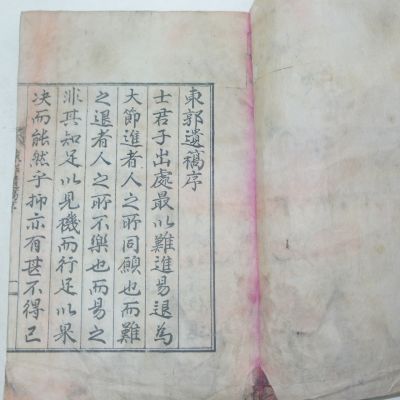 東郭遺稿序
士君子出處最以難進易退為
大節進者人之所同願也而難
之退者人之所不樂也而易之
非其知足以見磯而行足以果
决而能然乎抑亦有甚不得已